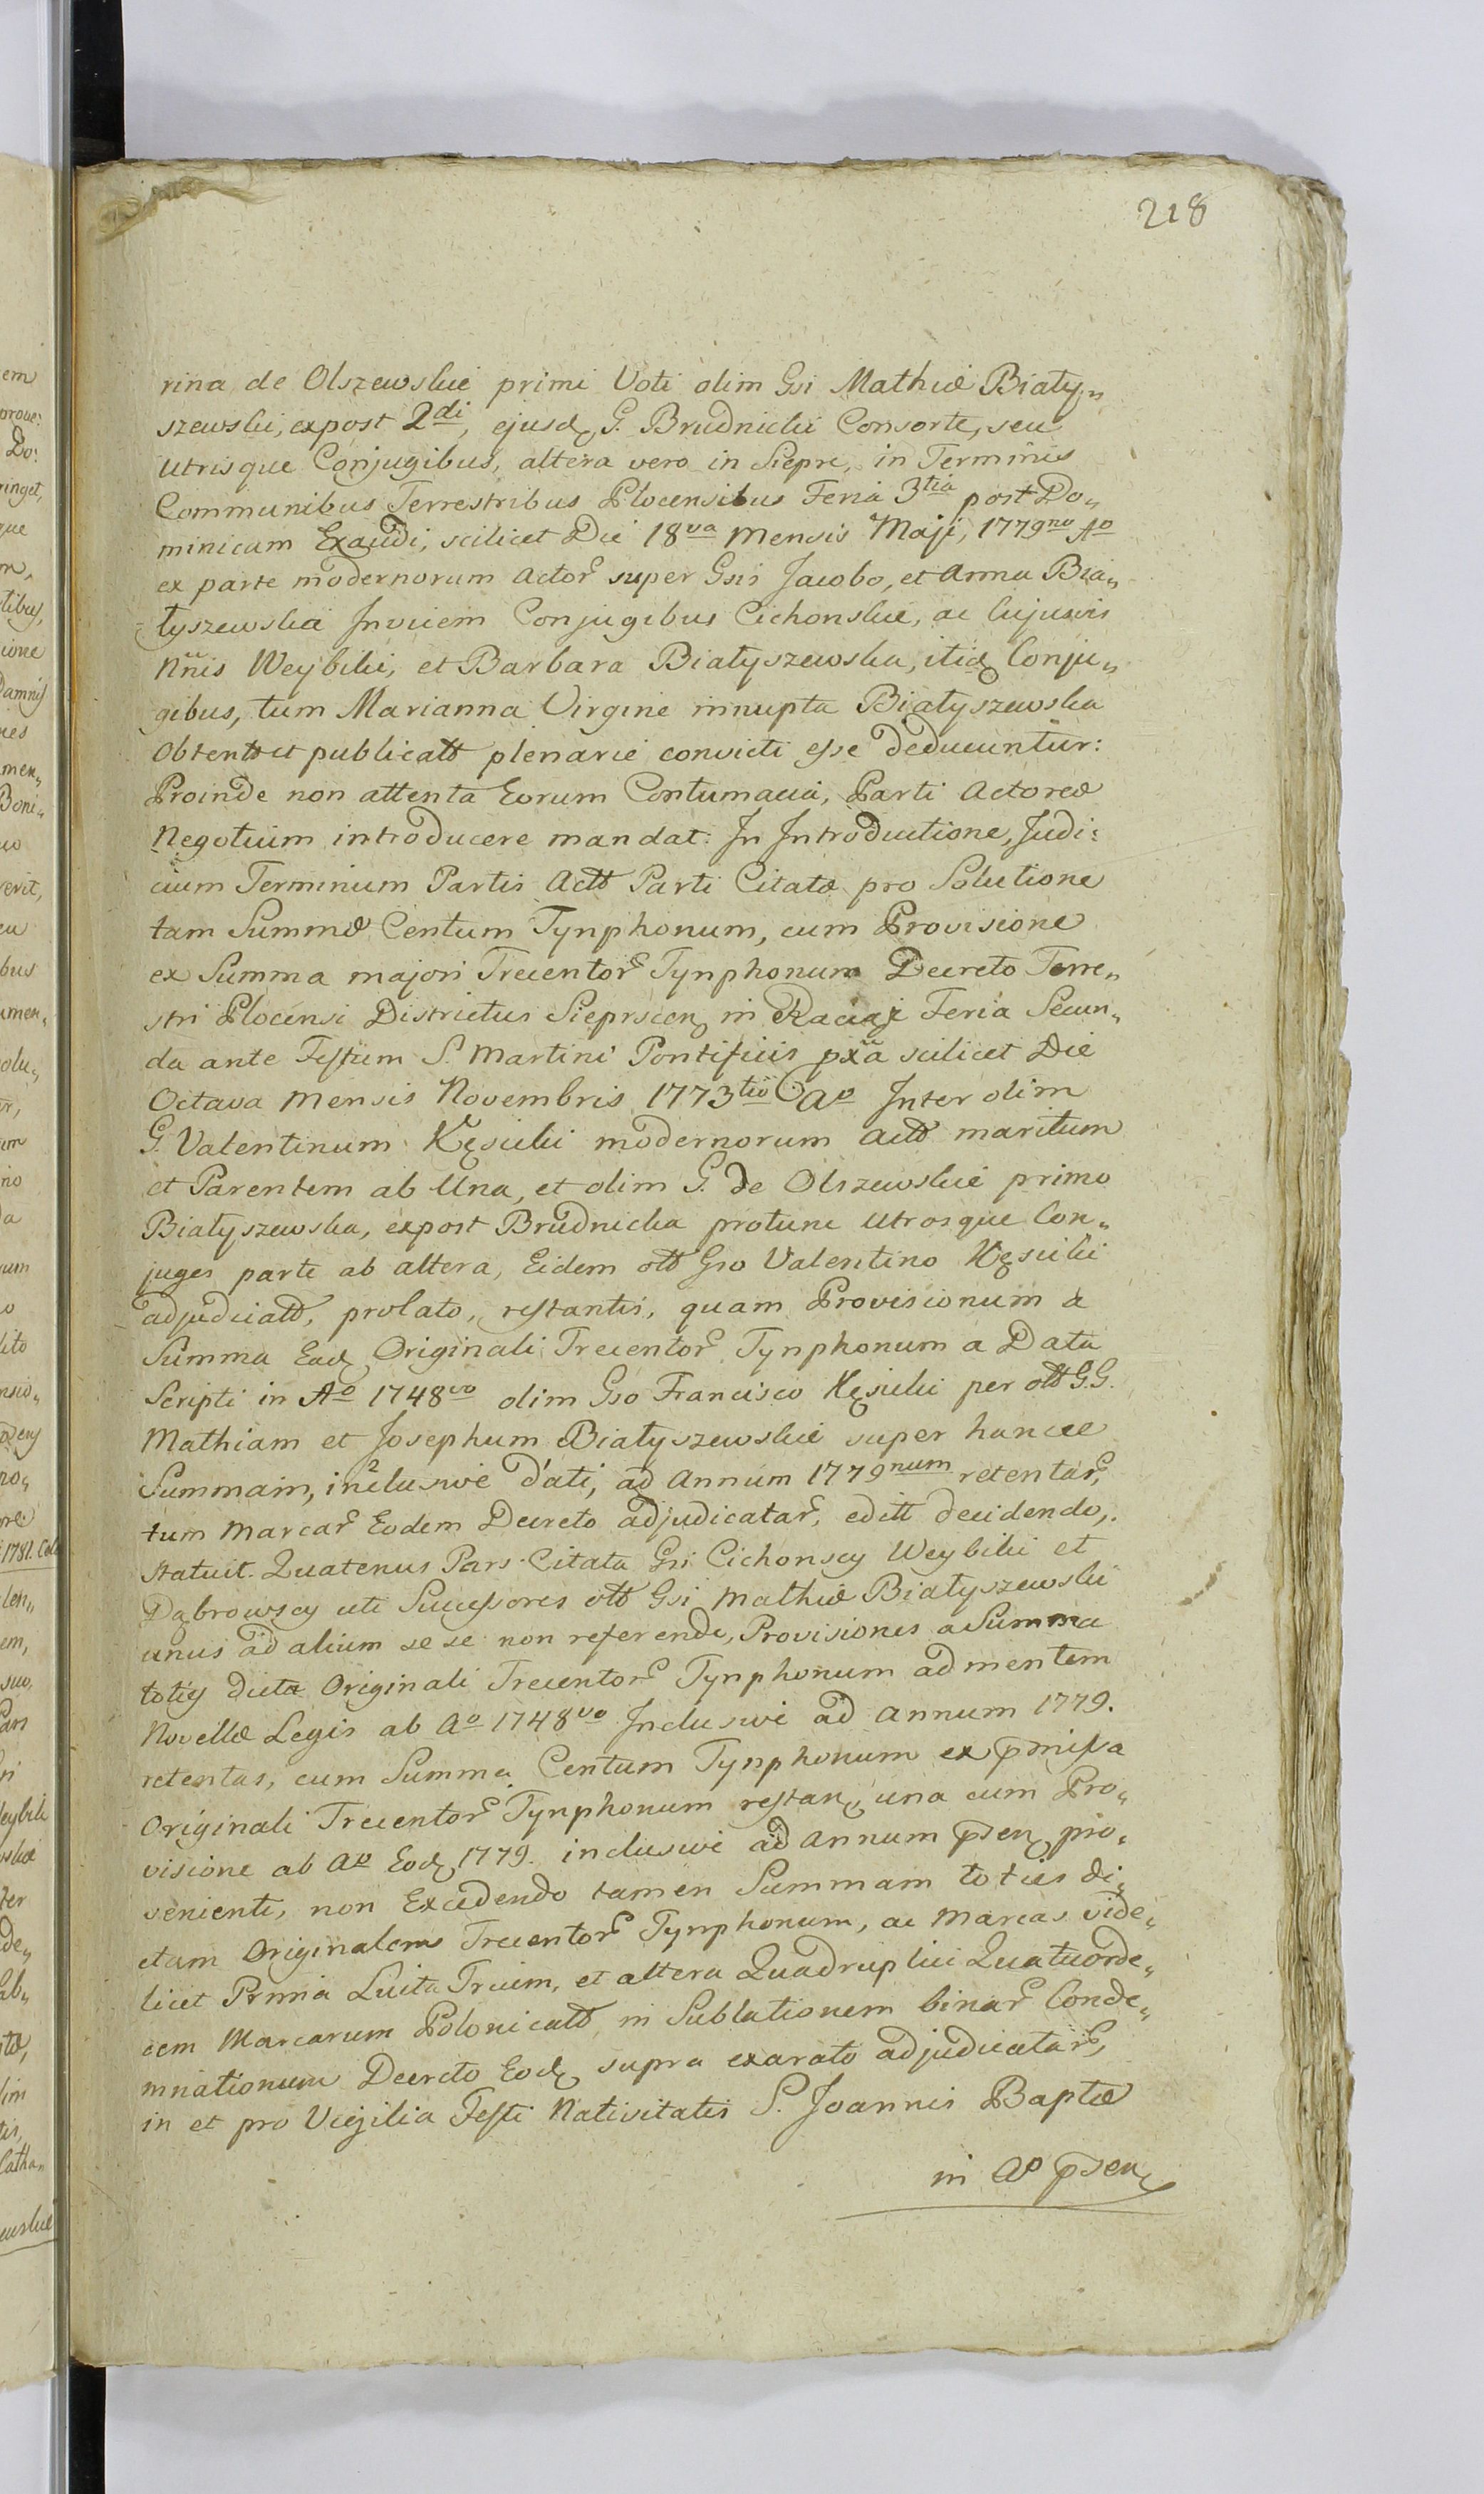 218
rina de Olszewskie primi Voti olim Gsi Mathiæ Biały„
szewski, expost 2di, ejusd, G. Brudnicki Consorte, seu
utrisque Conjugibus, altera vero in Siepre, in Terminis
Communibus Terrestribus Plocensibus Feria 3tia post Do„
minicam Exaudi, scilicet Die 18va Mensis Maji, 1779no Ao
ex parte modernorum Actor super Gsis Jacobo, et Anna Bia„
łyszewska Invicem Conjugibus Cichonskie, ac Cujusvis
Nnis Weybski, et Barbara Białyszewska, itid Conju„
gibus, tum Marianna Virgine innupta Białyszewska
obtent et publicatt plenarie convicti esse deducuntur:
Proinde non attenta Eorum Contumacia, Parti Actoreæ
Negotium introducere mandat: In Introductione, Judi:
cium Terminum Partis Actt Parti Citatæ pro Solutione
tam Summæ Centum Tynphonum, cum Provisione
ex Summa majori Trecentor Tynphonum Decreto Terre„
stri Plocensi Districtus Sieprscen in Raciąż Feria Secun„
da ante Festum S. Martini Pontificis pxa scilicet Die
Octava Mensis Novembris 1773tio Ao Inter olim
G. Valentinum Kęsicki modernorum Actt maritum
et Parentem ab Una, et olim G. de Olszewskie primo
Białyszewska, expost Brudnicka protunc utrosque Con„
juges parte ab altera, Eidem ott Gso Valentino Kęsicki
adjudicatt, prolato, restantis, quam Provisionum a
Summa Ead Originali Trecentor Tynphonum a Data
Scripti in Ao 1748vo olim Gso Francisco Kęsicki per ott G.G.
Mathiam et Josephum Białyszewskie super hancce
Summam, inclusive dati, ad Annum 1779num retentar,
tum Marcar Eodem Decreto adjudicatar, editt decidendo,
statuit. Quatenus Pars Citata Gsi Cichonscy Weybski et
Dąbrowscy uti Successores ott Gsi Mathiæ Białyszewski
unus ad alium se se non referendo, Provisiones a Summa
toties dicta Originali Trecentor Tynphonum ad mentem
Novellæ Legis ab Ao 1748vo Inclusive ad Annum 1779.
retentas, cum Summa Centum Tynphonum ex pmissa
Originali Trecentor Tynphonum restan, una cum Pro„
visione ab Ao Eod 1779. inclusive ad Annum psen pro„
venienti, non Excedendo tamen Summam toties di„
ctam Originalem Trecentor Tynphonum, ac Marcas vide„
licet Prima Luita Trium, et altera Quadruplici Quatuorde„
cem Marcarum Polonicatt in Sublationem binar Conde„
mnationum Decreto Eod supra exarato adjudicatar,
in et pro Vigilia Festi Nativitatis S. Joannis Baptæ
in Ao psen